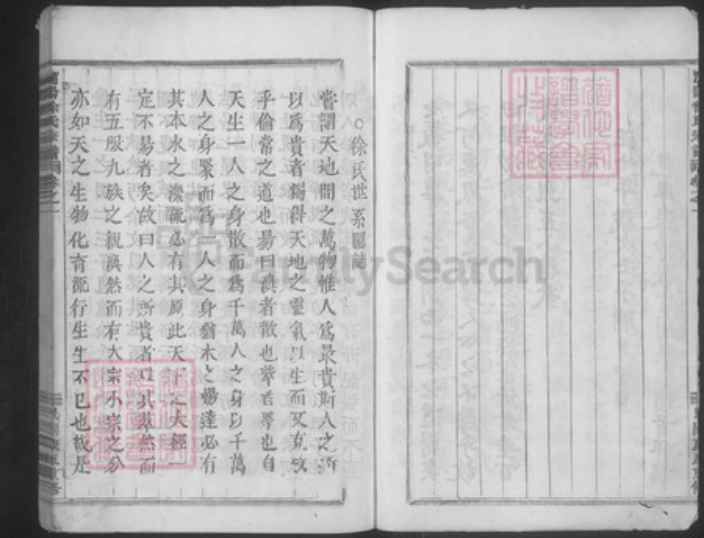 ○徐氏世系圖誌
嘗謂天地間之萬物惟人爲最貴斯人之所
以爲貴者獨得天地之靈氣以生而又克敦
乎倫常之道也易曰渙者散也萃者聚也自
天生一人之身散而爲千萬人之身以千萬
人之身聚而爲一人之身猶木之暢達必有
其本水之瀠流必有其原此天下之大經一
定不易者矣故曰人之所貴者以其萃然而
有五服九族之親渙然而有大宗小宗之分
亦如天之生物化育流行生生不已也哉是
FamilySearch